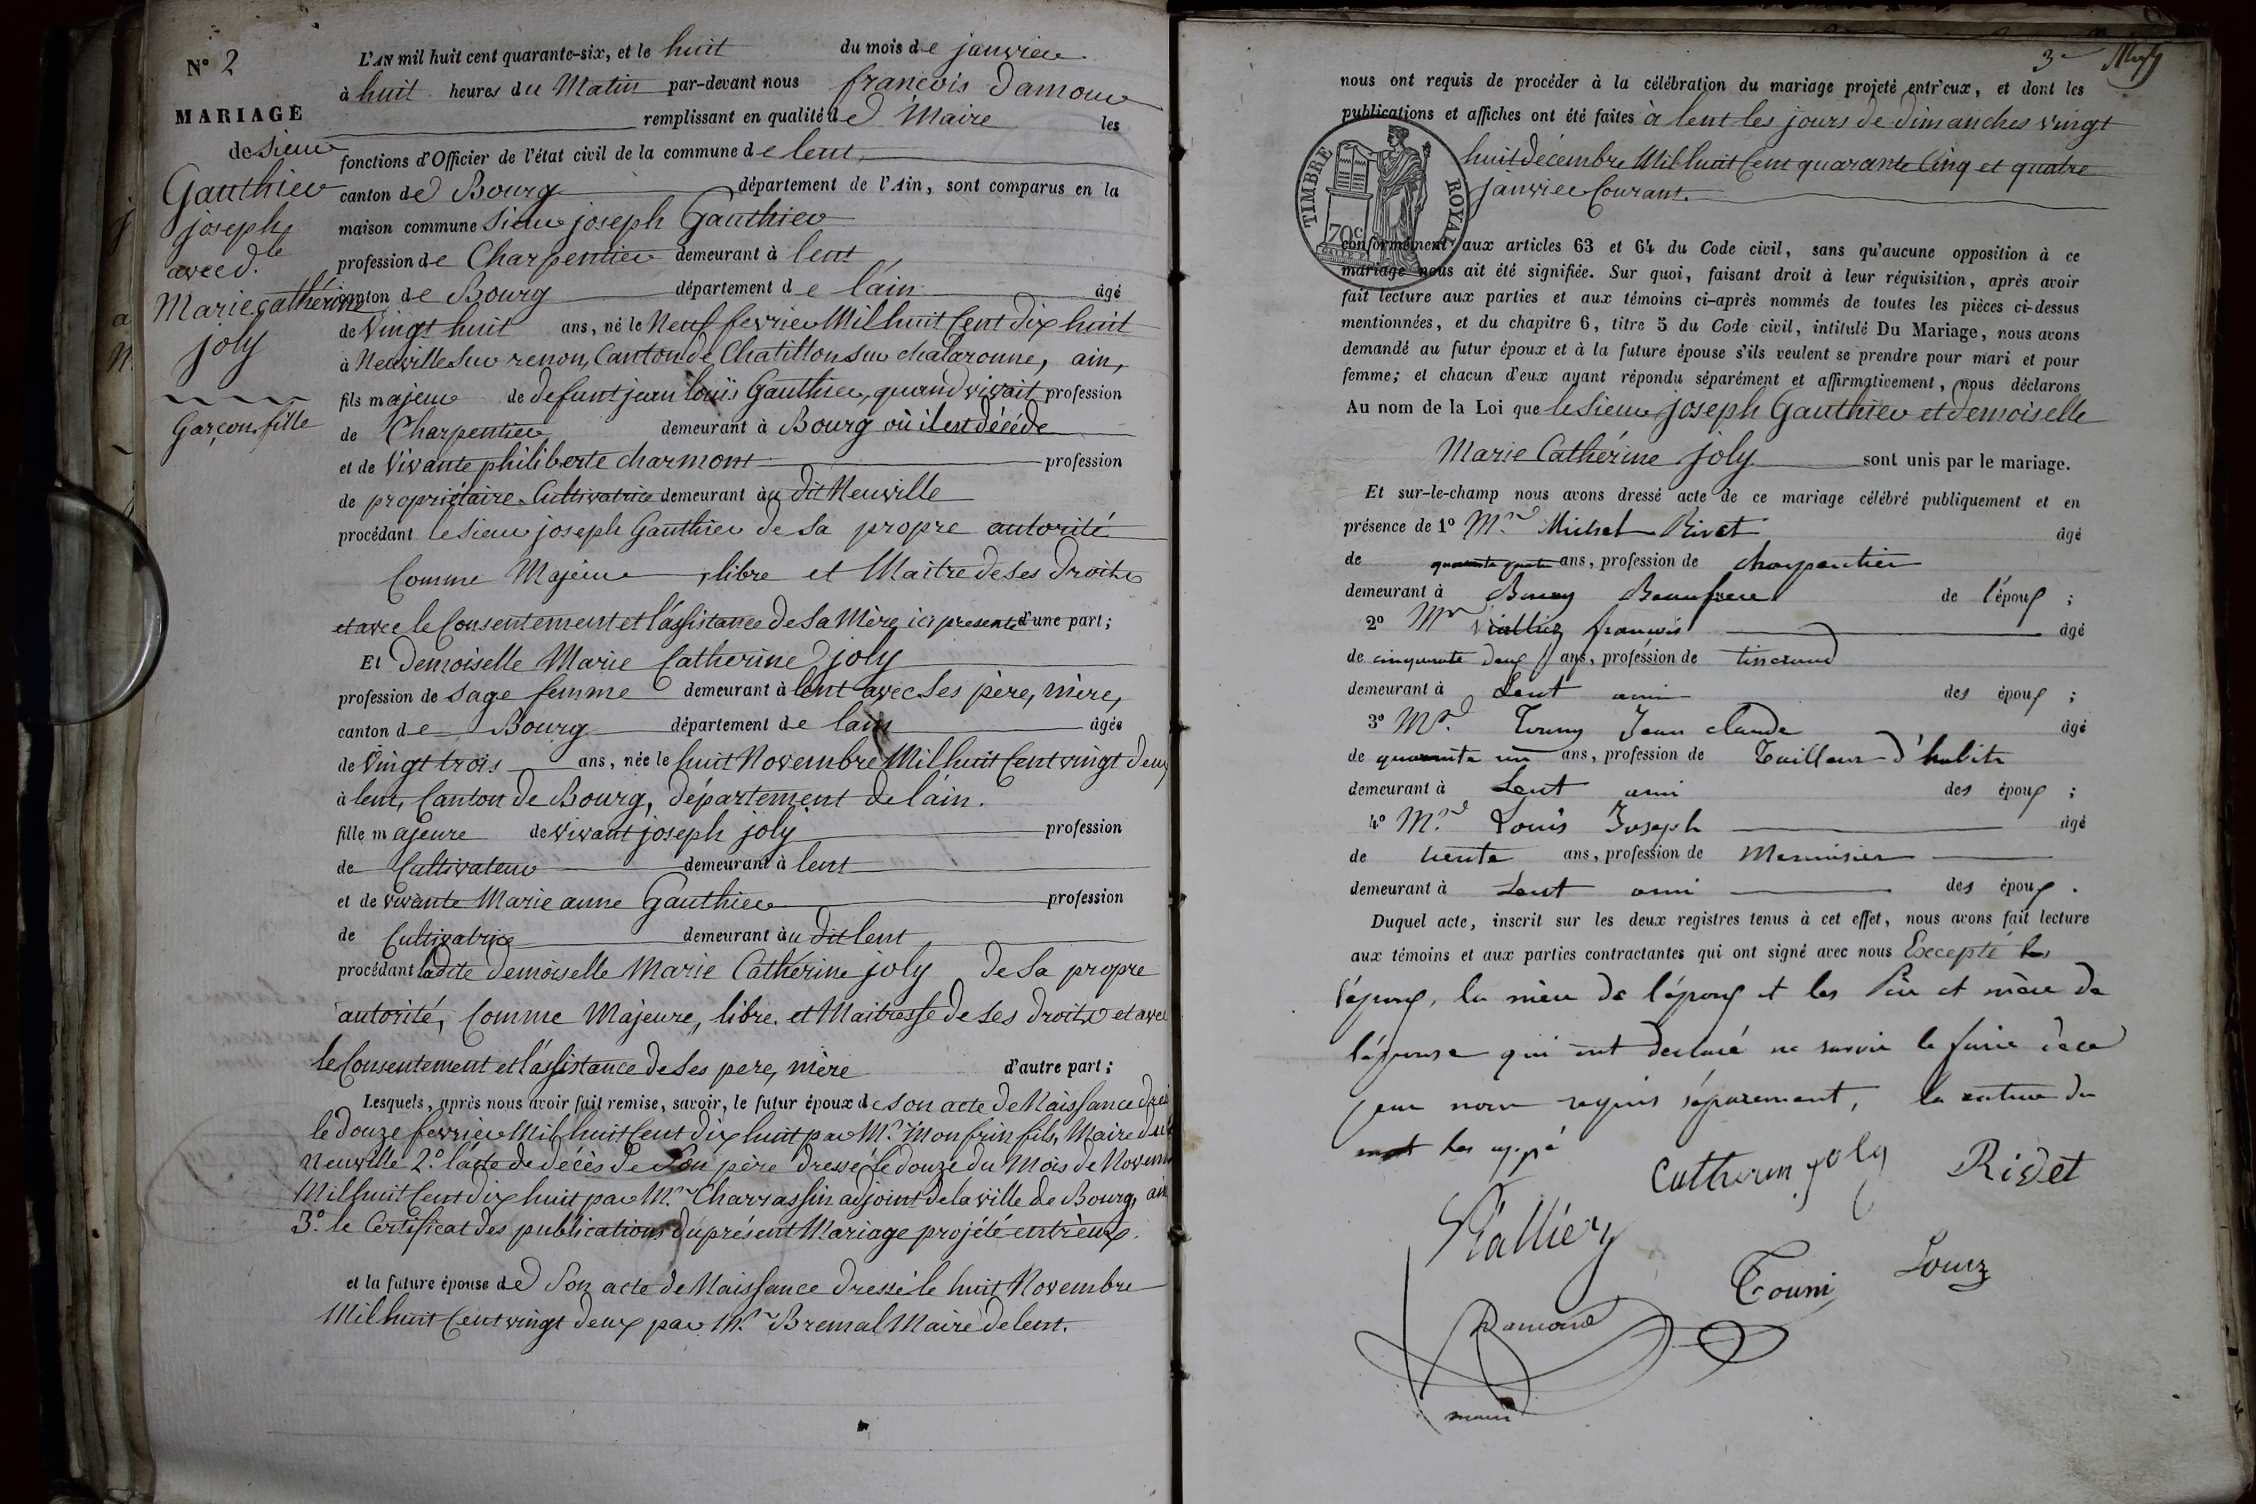 N° 2
MARIAGE
de sieur
Gauthier
joseph
avec d.lle
Marie Cathérine
joly
Garçon, fille
L'AN mil huit cent quarante-six, et le huit du mois de janvier
à huit heures du Matin par-devant nous françois Damour
remplissant en qualité de Maire les
fonctions d'Officier de l'état civil de la commune de lent,
canton de Bourg département de l'Ain, sont comparus en la
maison commune sieur joseph Gauthier
profession de Charpentier demeurant à lent
canton de Bourg département de l'ain âgé
de Vingt huit ans, né le Neuf fevrier Mil huit Cent dix huit
à Neuville sur renon, Canton de Chatillon sur chalaronne, ain,
fils majeur de defunt jean louis Gauthier, quand vivait profession
de Charpentier demeurant à Bourg où il est décédé
et de Vivante philiberte charmont profession
de propriétaire Cultivatrice demeurant au dit Neuville
procédant le sieur joseph Gauthier de sa propre autorité
Comme Majeur, libre et Maitre de ses droits
et avec le Consentement et l'assistance de sa Mère ici presente d'une part;
Et Demoiselle Marie Catherine joly
profession de sage femme demeurant à lent avec ses père, mère,
canton de Bourg département de lain âgée
de Vingt trois ans, née le huit Novembre Mil huit Cent vingt deux
à lent, Canton de Bourg, département de l'ain.
fille majeure de vivant joseph joly profession
de Cultivateur demeurant à lent
et de vivante Marie anne Gauthier profession
de Cultivatrice demeurant au dit lent
procédant ladite demoiselle Marie Cathérine joly de sa propre
autorité, Comme Majeure, libre et Maitresse de ses droits et avec
le Consentement et l'assistance de ses pere, mère d'autre part;
Lesquels, après nous avoir fait remise, savoir, le futur époux de son acte de Naissance
le douze fevrier Mil huit Cent dix huit par Mr. Monfrin fils, Maire du
Neuville 2.° l'acte de décès de son père dressé le douze du Mois de
Mil huit Cent dix huit par Mr. Charrassin adjoint de la ville de Bourg, ain
3.° le Certificat des publications du présent Mariage projété entr'eux.
et la future épouse de Son acte de Naissance dressé le huit Novembre
Mil huit Cent vingt deux par Mr. Bremal Maire de lent.
3e
nous ont requis de procéder à la célébration du mariage projeté entr'eux, et dont les
publications et affiches ont été faites à lent les jours de dimanches vingt
huit décembre Mil huit Cent quarante Cinq et quatre
janvier Courant.
TIMBRE ROYAL
70c
conformément aux articles 63 et 64 du Code civil, sans qu'aucune opposition à ce
mariage nous ait été signifiée. Sur quoi, faisant droit à leur réquisition, après avoir
fait lecture aux parties et aux témoins ci-après nommés de toutes les pièces ci-dessus
mentionnées, et du chapitre 6, titre 5 du Code civil, intitulé Du Mariage, nous avons
demandé au futur époux et à la future épouse s'ils veulent se prendre pour mari et pour
femme; et chacun d'eux ayant répondu séparément et affirmativement, nous déclarons
Au nom de la Loi que le sieur joseph Gauthier et demoiselle
Marie Cathérine joly sont unis par le mariage.
Et sur-le-champ nous avons dressé acte de ce mariage célébré publiquement et en
présence de 1° Mr. Michel Rivet âgé
de quarante quatre ans, profession de charpentier
demeurant à Bourg Beaufrere de l'époux ;
2° Mr Vialliez françois âgé
de cinquante deux ans, profession de tisserand
demeurant à Lent ami des époux ;
3° Mr. Touny Jean claude âgé
de quarante un ans, profession de Tailleur d'habits
demeurant à Lent ami des époux ;
4° Mr. Louis Joseph âgé
de trente ans, profession de Menuisier
demeurant à Lent ami des époux .
Duquel acte, inscrit sur les deux registres tenus à cet effet, nous avons fait lecture
aux témoins et aux parties contractantes qui ont signé avec nous Excepté
l'époux, la mère de l'époux et les Père et mère de
l'épouse qui ont declaré ne savoir le faire de ce
requis séparement, la
Catherin joly
Rivet
Vialliez
Touni
Louez
Damour
maire